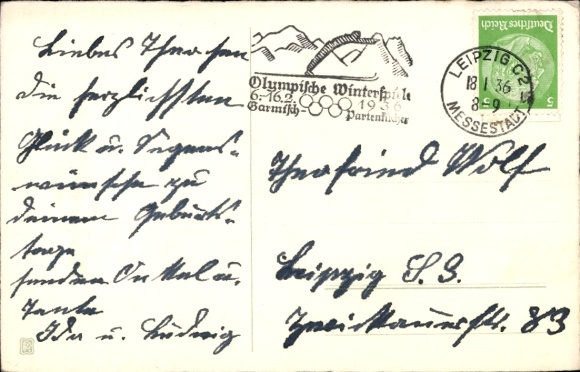 Liebes Theochen
die herzlichsten
Glück u. Segens-
wünsche zu
deinem Geburts-
tage
senden Onkel u.
Tante
Ida u. Ludwig
Olympische Winterspiele
6.-16.2. 1936
Garmisch- Partenkirchen
LEIPZIG C2
18.1.36
8-9
MESSESTADT
Deutsches Reich
5 5
Theofried Wolf
Leipzig S. 3.
Zwickauerstr. 83